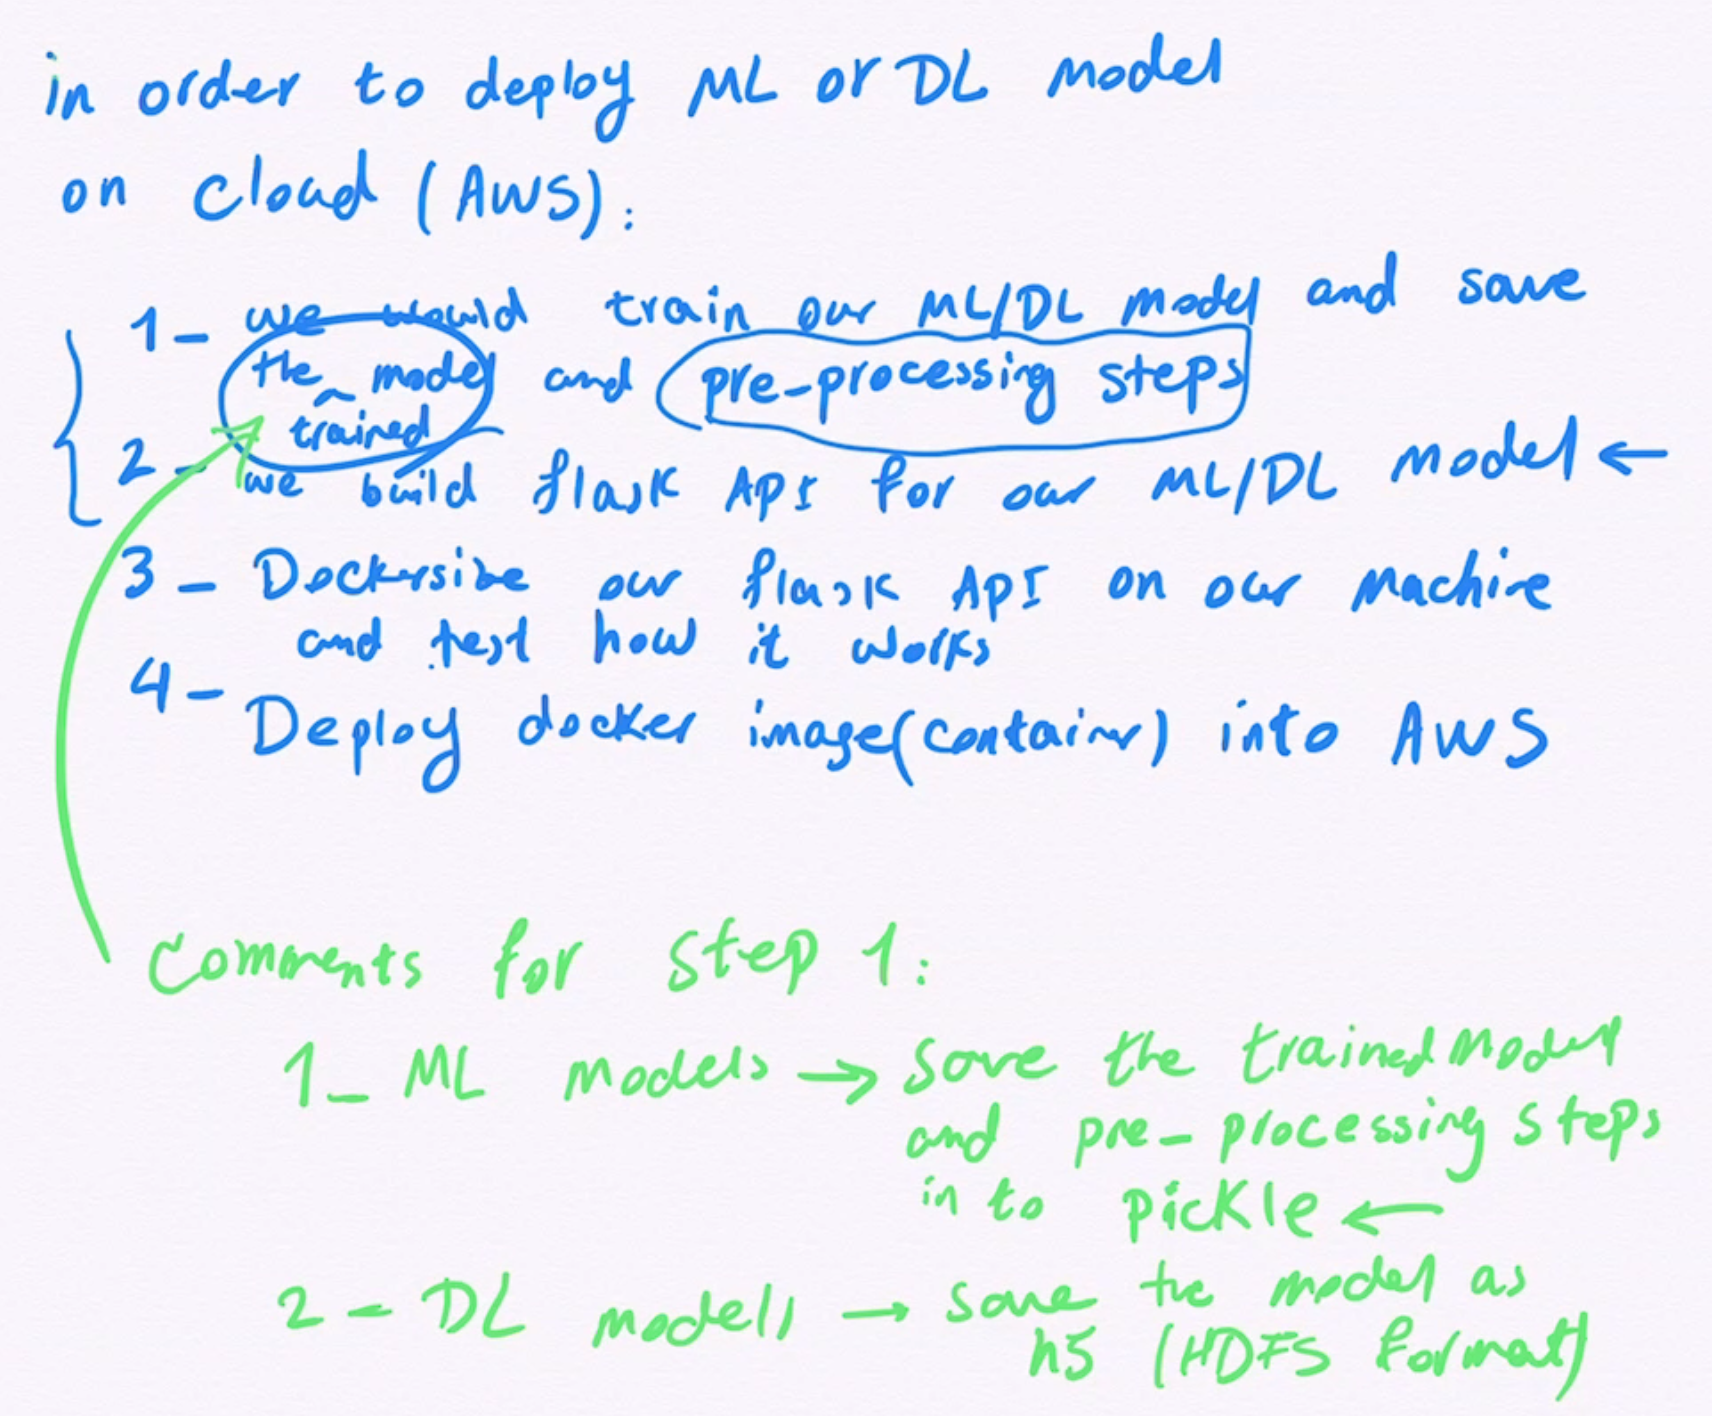 in order to deploy ML or DL model
on cloud (AWS):
1- we would train our ML/DL model and save
the ^ model and pre-processing steps
trained
2- we build flask API for our ML/DL model ←
3- Dockersize our flask API on our machine
and test how it works
4- Deploy docker image(container) into AWS
Comments for step 1:
1- ML models → Save the trained model
and pre-processing steps
in to pickle ←
2- DL models → save the model as
h5 (HDFS format)